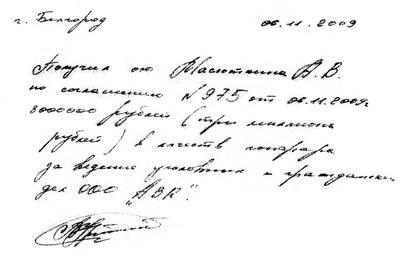 г. Белгород 06.11.2009
Получил от Масюткина А.В.
по соглашению №975 от 06.11.2009г
3000000 рублей (три миллиона
рублей) в качестве гонорара
за ведение уголовных и гражданских
дел ООО „АВК".